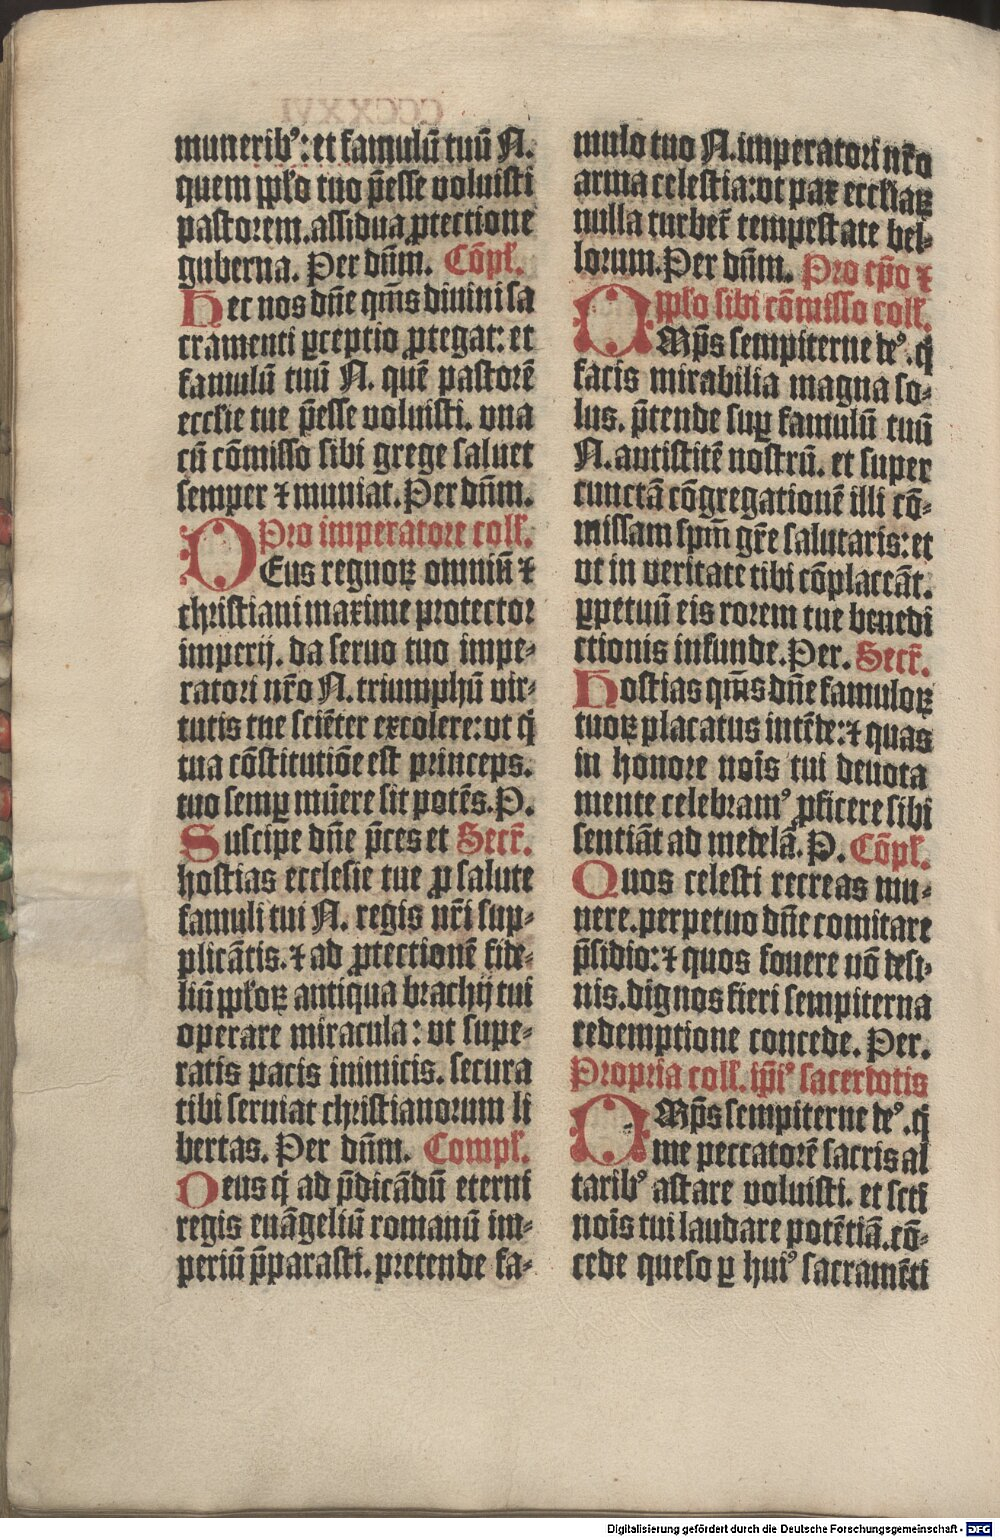 munerib⁹: et famulū tuū N.
quem pp̄lo tuo p̄esse voluisti
pastorem. assidua ꝓtectione
guberna. Per dn̄m. Cōpl̄.
Hec nos dn̄e qm̄s diuini sa
cramenti ꝑceptio ꝓtegat: et
famulū tuū N. quē pastorē
eccl̄ie tue p̄esse voluisti. vna
cū cōmisso sibi grege saluet
semper ⁊ muniat. Per dn̄m.
Pro imperatore coll̄.
DEus regnoꝝ omniū ⁊
christiani maxime protector
imperij. da seruo tuo impe⸗
ratori nr̄o N. triumphū vir⸗
tutis tue sciēter excolere: vt q̄
tua cōstitutiōe est princeps.
tuo semꝑ mūere sit potēs. P.
Suscipe dn̄e p̄ces et Secr̄.
hostias ecclesie tue ꝓ salute
famuli tui N. regis nr̄i sup⸗
plicātis. ⁊ ad ꝓtectionē fide⸗
liū pp̄loꝝ antiqua brachij tui
operare miracula: vt supe⸗
ratis pacis inimicis. secura
tibi seruiat christianorum li
bertas. Per dn̄m. Compl̄.
Deus q̄ ad p̄dicādū eterni
regis euāgeliū romanū im⸗
periū p̄parasti. pretende fa⸗
mulo tuo N. imperatori nr̄o
arma celestia: vt pax eccl̄iaꝝ
nulla turbet̄ tempestate bel⸗
lorum. Per dn̄m. Pro ep̄o ⁊
pp̄lo sibi cōmisso coll̄.
OMp̄s sempiterne de⁹. q̄
facis mirabilia magna so⸗
lus. p̄tende suꝑ famulū tuū
N. antistitē nostrū. et super
cunctā cōgregationē illi cō⸗
missam sp̄m gr̄e salutaris: et
vt in veritate tibi cōplaceāt.
ꝑpetuū eis rorem tue benedi
ctionis infunde. Per. Secr̄.
Hostias qm̄s dn̄e famuloꝝ
tuoꝝ placatus intēde: ⁊ quas
in honore nois̄ tui deuota
mente celebram⁹ ꝓficere sibi
sentiāt ad medelā. P. Cōpl̄.
Quos celesti recreas mu⸗
nere. perpetuo dn̄e comitare
p̄sidio: ⁊ quos fouere nō desi⸗
nis. dignos fieri sempiterna
redemptione concede. Per.
Propria coll̄. ip̄i⁹ sacerdotis
OMp̄s sempiterne de⁹. q̄
me peccatorē sacris al
tarib⁹ astare voluisti. et scti
nois̄ tui laudare potētiā. cō⸗
cede queso ꝑ hui⁹ sacramēti
Digitalisierung gefördert durch die Deutsche Forschungsgemeinschaft - DFG